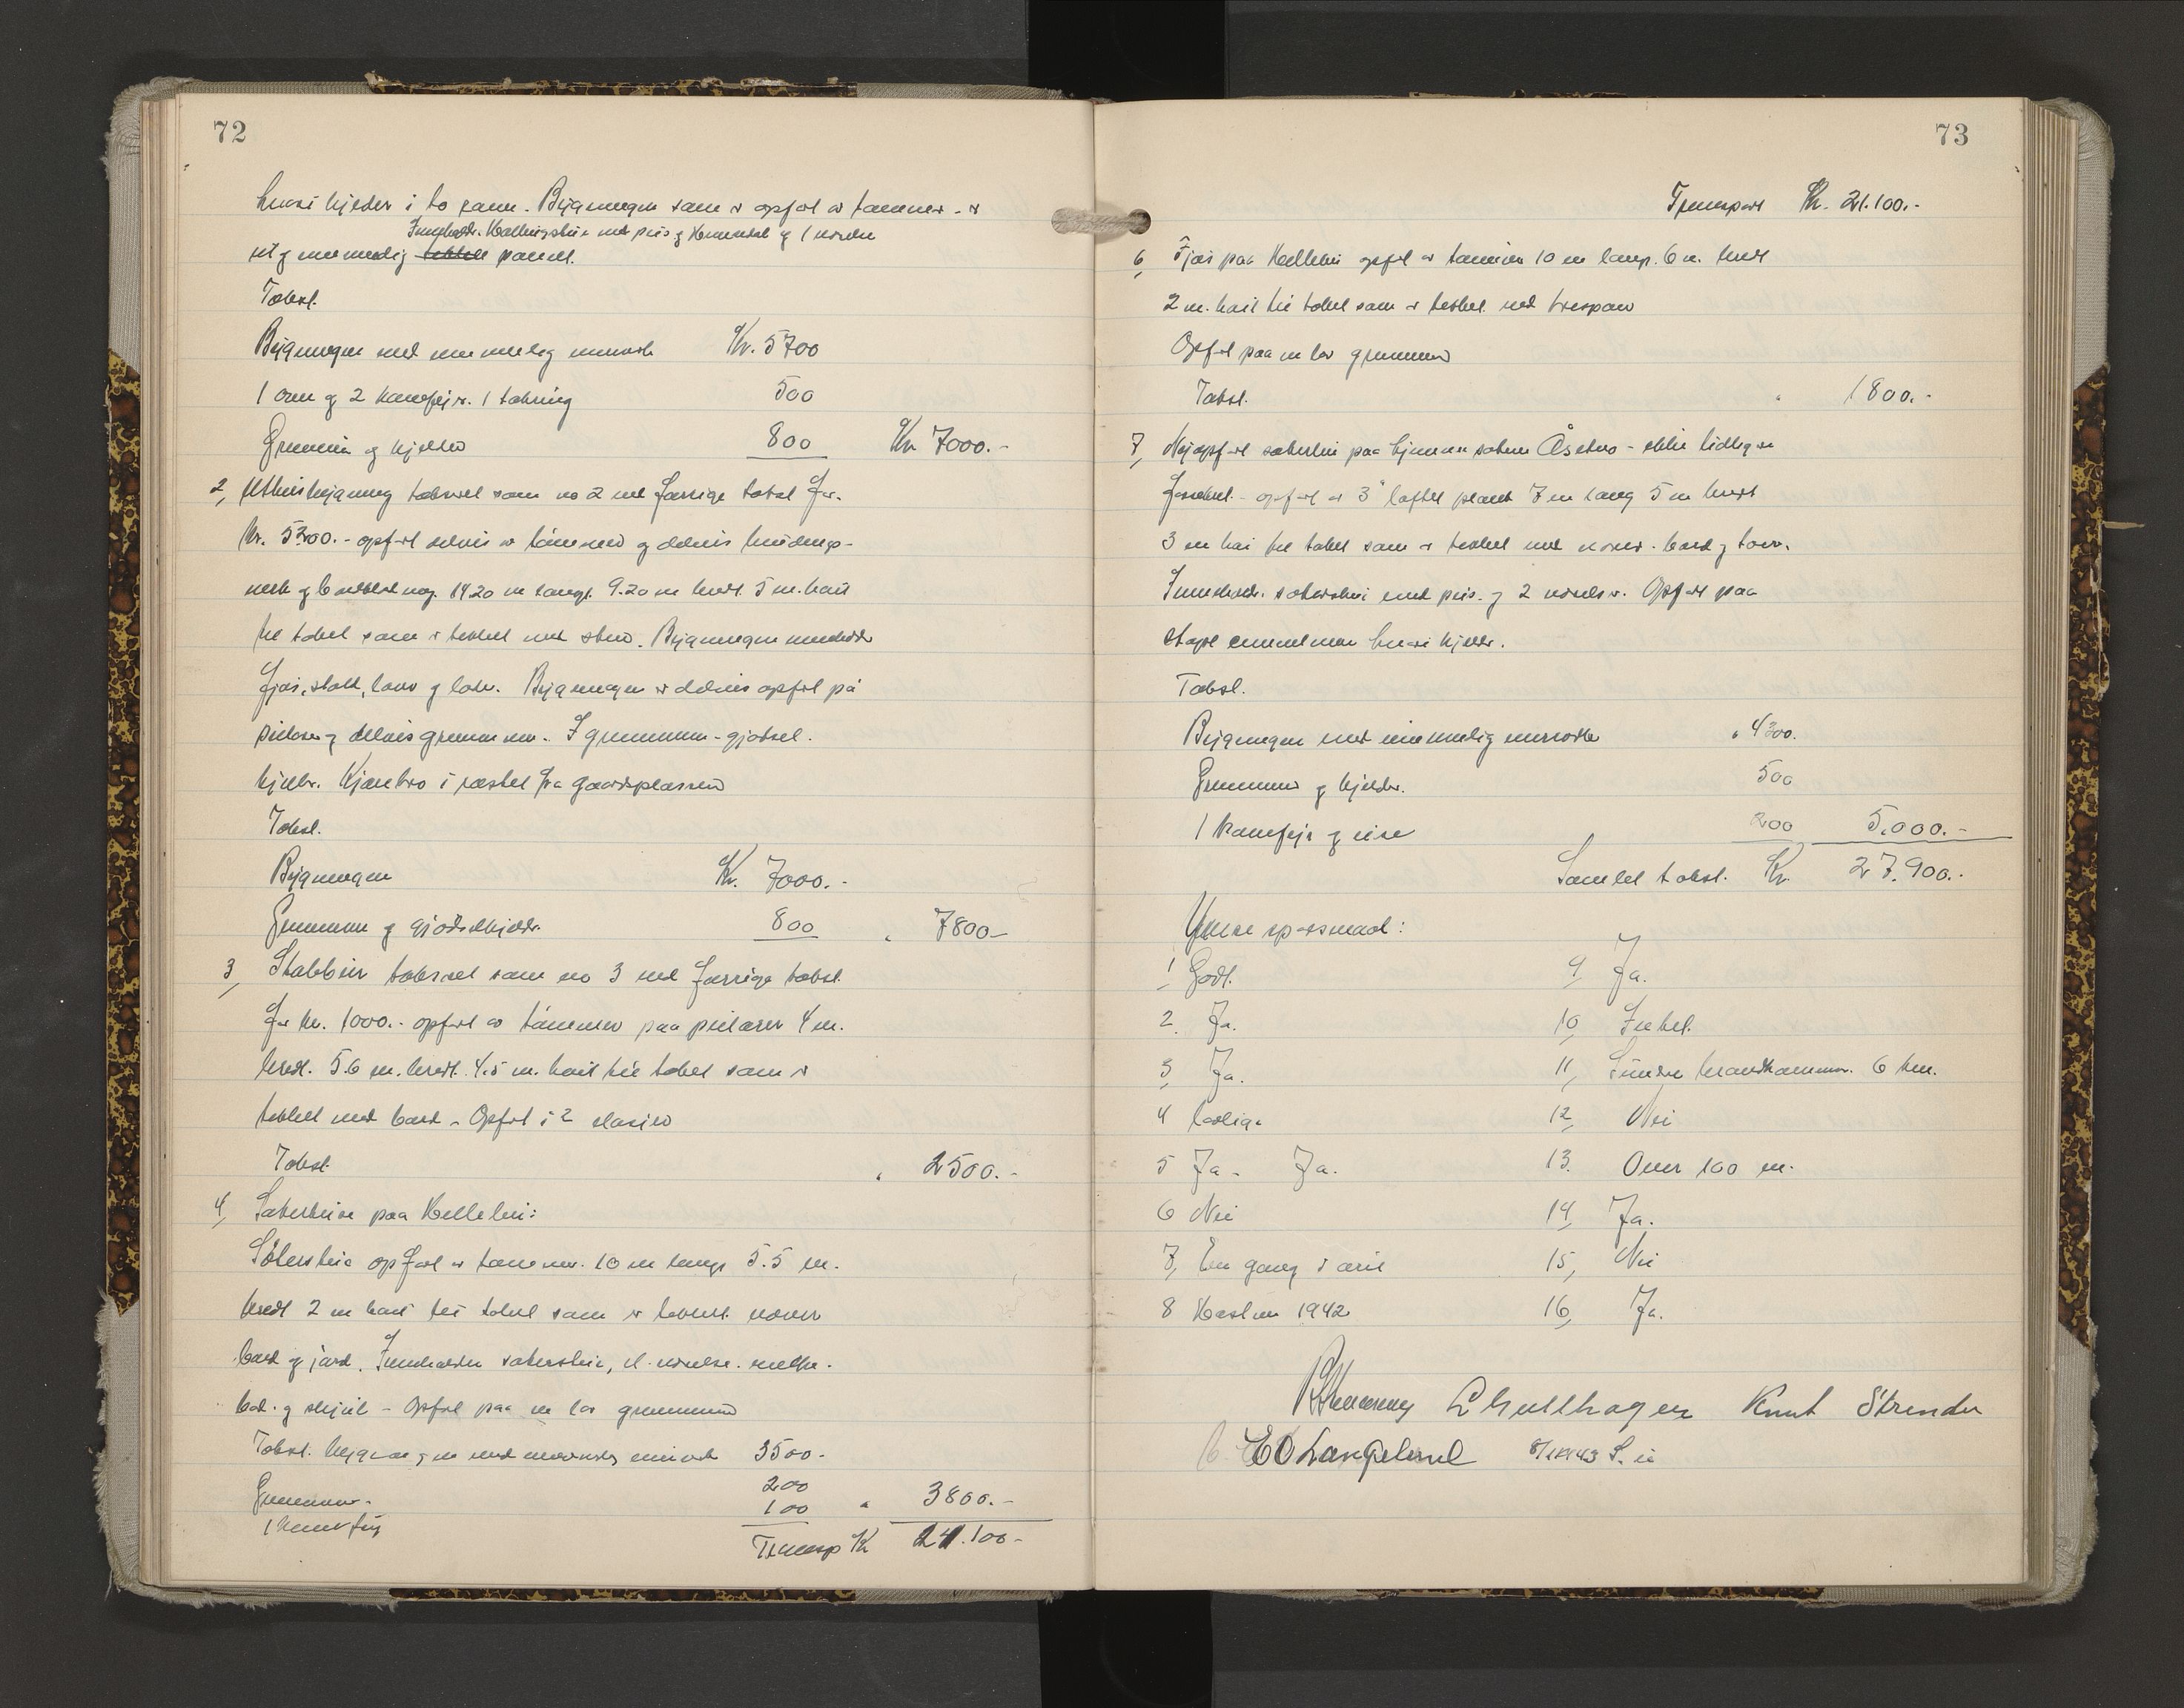 72
hvori kjelder i to rum. Bygningen som er opført av tømmer - er
Inneholder. Kallingstue med peis og Kammers og 1 værelse
ut og innvendig panelt.
Takst.
Bygningen med innvendig murverk Kr. 5700
1 ovn og 2 komfyrer. 1 takring 500
Grunnmur og kjeller 800 Kr 7000.-
2, Uthusbygning taksert som no 2 ved forrige takst for
kr. 5300.- opført delvis av tømmer og delvis bindings-
verk og bordkledning. 14.20 m langt. 9.20 m bredt. 5 m. høit
til taket som er tekket med sten. Bygningen inneholder
fjøs, stall, laave og lader. Bygningen er delvis opført på
pilarer og delvis grunnmur. I grunnmuren - gjødsel.
kjeller. Kjørebro i forbindelse fra gaardsplassen
Takst.
Bygningen Kr. 7000.-
Grunnmur og gjødselkjeller 800 " 7800-
3, Stabbur taksert som no 3 ved forrige takst.
for kr. 1000.- opført av tømmer paa pilarer 4 m.
bredt. 5.6 m. bredt. 4.5 m. høit til taket som er
tekket med bord - Opført i 2 etasjer
Takst. " 2500.-
4, Sæterhuse paa Hellebu:
Sæterstue opført av tømmer. 10 m langt 5.5 m.
bredt 2 m høit til taket som er tekket never
bord og jord. Inneholder sæterstue, et værelse. melke.
bod. og skjul - Opført paa en lav grunnmur
Takst. bygningen med innvendig murverk 3500.-
Grunnmur. 200
1 komfyr 100 " 3800.-
Transp Kr 21.100-
73
Transport Kr. 21.100.-
6, Fjøs paa Hellebu opført av tømmer 10 m langt. 6 m. bredt
2 m. høit til taket som er tekket med trespaan
Opført paa en lav grunnmur
Takst. " 1800.-
7, Nyopført sæterbu paa hjemme sæteren Åsetra - ikke tidligere
forsikret - opført av 3" laftet plank 7 m lang 5 m bredt
3 m høi til taket som er tekket med never. bord og torv.
Inneholder. sæterstue med peis. og 2 værelser. Opført paa
støpt cementmur hvori kjeller.
Takst.
Bygningen med innvendig murverk " 4300.
Grunnmur og kjeller. 500
1 Komfyr og peise 200 5.000.-
Samlet takst. Kr. 27.900.-
Ymse spørsmaal:
1, Godt. 9, Ja.
2. Ja. 10, Intet.
3, Ja. 11, Søndre brandkammer. 6 km.
4 Lovlige 12, Nei
5 Ja - Ja. 13. Over 100 m.
6 Nei 14, Ja.
7, En gang i året 15, Nei
8 Høsten 1942 16, Ja.
Knut Strande
E O Langeland 8/11 1943